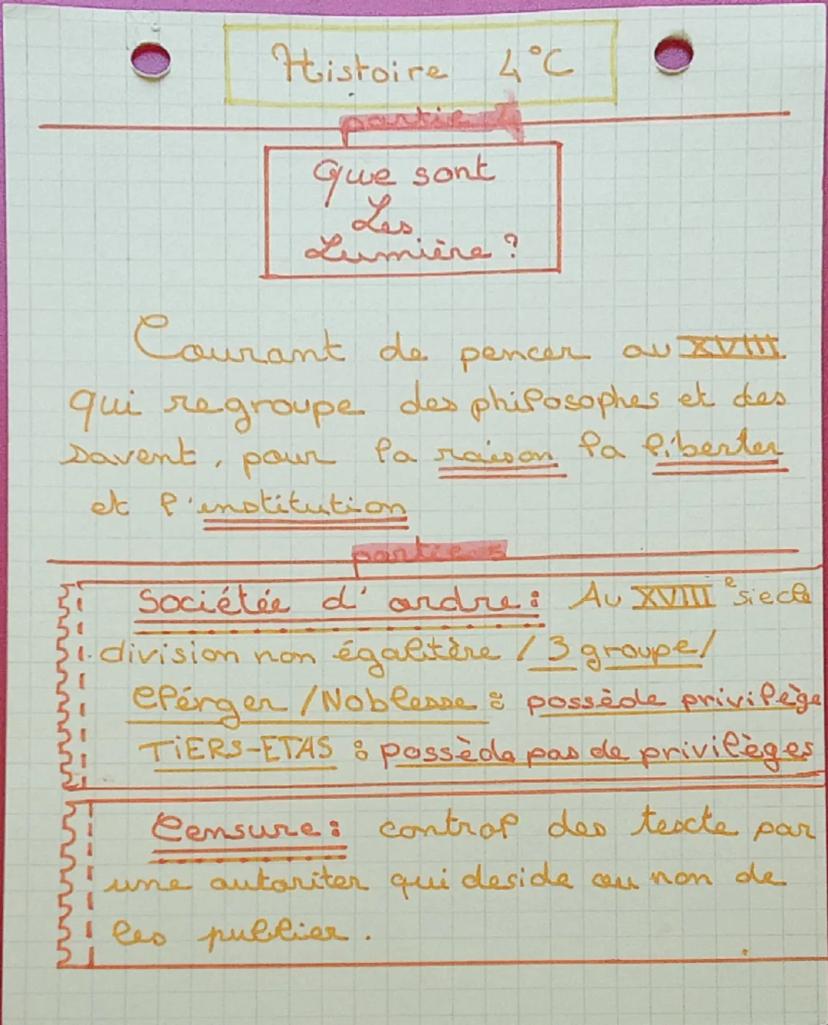 Histoire 4°C
partie 1
Que sont
Les
Lumière ?
Courant de pencer au XVIII
qui regroupe des philosophes et des
savent, pour la raison la liberter
et l'institution
partie
Sociétée d'ordre : Au XVIII e siecle
division non égalitère / 3 groupe /
Clérger / Noblesse : possède privilège
TiERS-ETAS : possède pas de privilèges
Censure : control des texte par
une autoriter qui deside ou non de
les publier.